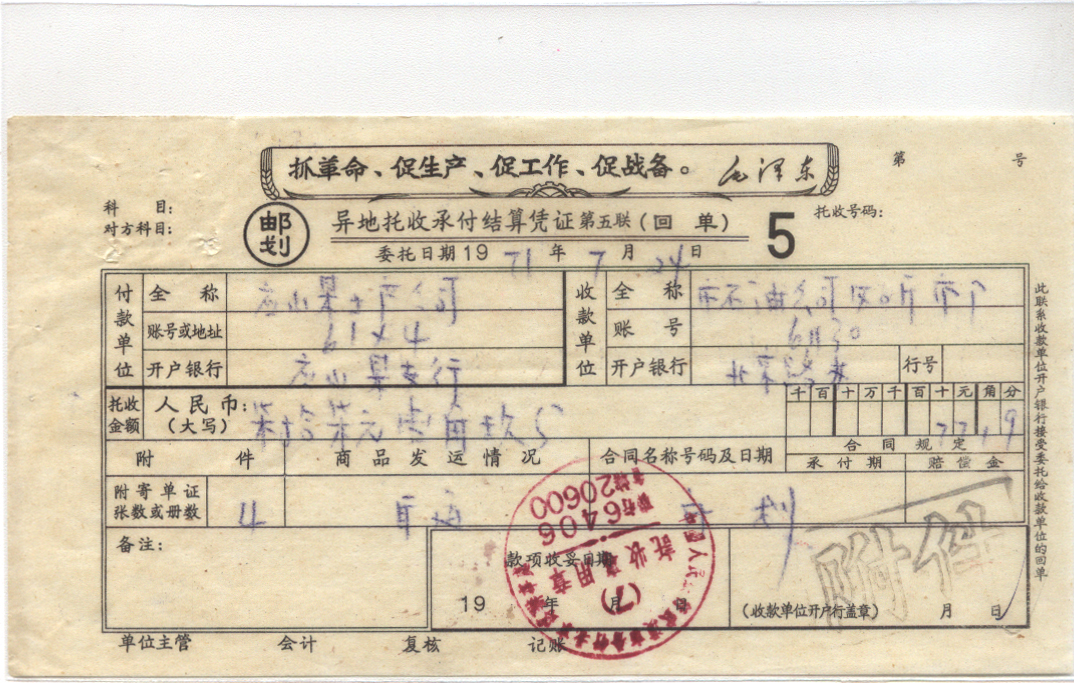 抓革命、促生产、促工作、促战备。 毛泽东
第 号
科 目：
对方科目：
邮划
异地托收承付结算凭证 第五联（回 单） 5
托收号码：
委托日期 19 71 年 7 月 24 日
付款单位
全 称
账号或地址 61×4
开户银行
收款单位
全 称 市石油公司
账 号
开户银行
行号
托收金额
人民币：（大写） 柒拾柒元 角玖分
千 百 十 万 千 百 十 元 角 分
7 7 1 9
合 同 规 定
承 付 期 赔 偿 金
附 件 商 品 发 运 情 况 合同名称号码及日期
附寄单证张数或册数 4
备注：
款项收妥日期
19 年 月 日
（收款单位开户行盖章） 月 日
附件
6406
20600
托收专用章
(7)
单位主管 会计 复核 记账
此联系收款单位开户银行接受委托给收款单位的回单